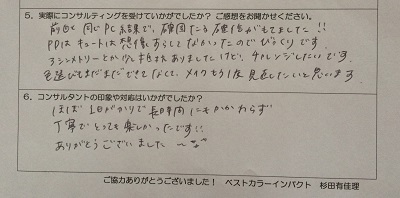 5. 実際にコンサルティングを受けていかがでしたか? ご感想をお聞かせください。
前回と同じPC結果で、確固たる確信がもてました!!
PPはキュートは想像すらしてなかったのでびっくりです。
アシンメトリーとか少し抵抗ありましたけど、チャレンジしたいです。
色選びもまだまだできてなくて、メイクももう1度見直したいと思います。
6. コンサルタントの印象や対応はいかがでしたか?
ほぼ1日がかりで長時間にもかかわらず
丁寧でとっても楽しかったです!!
ありがとうございました
ご協力ありがとうございました! ベストカラーインパクト 杉田有佳理